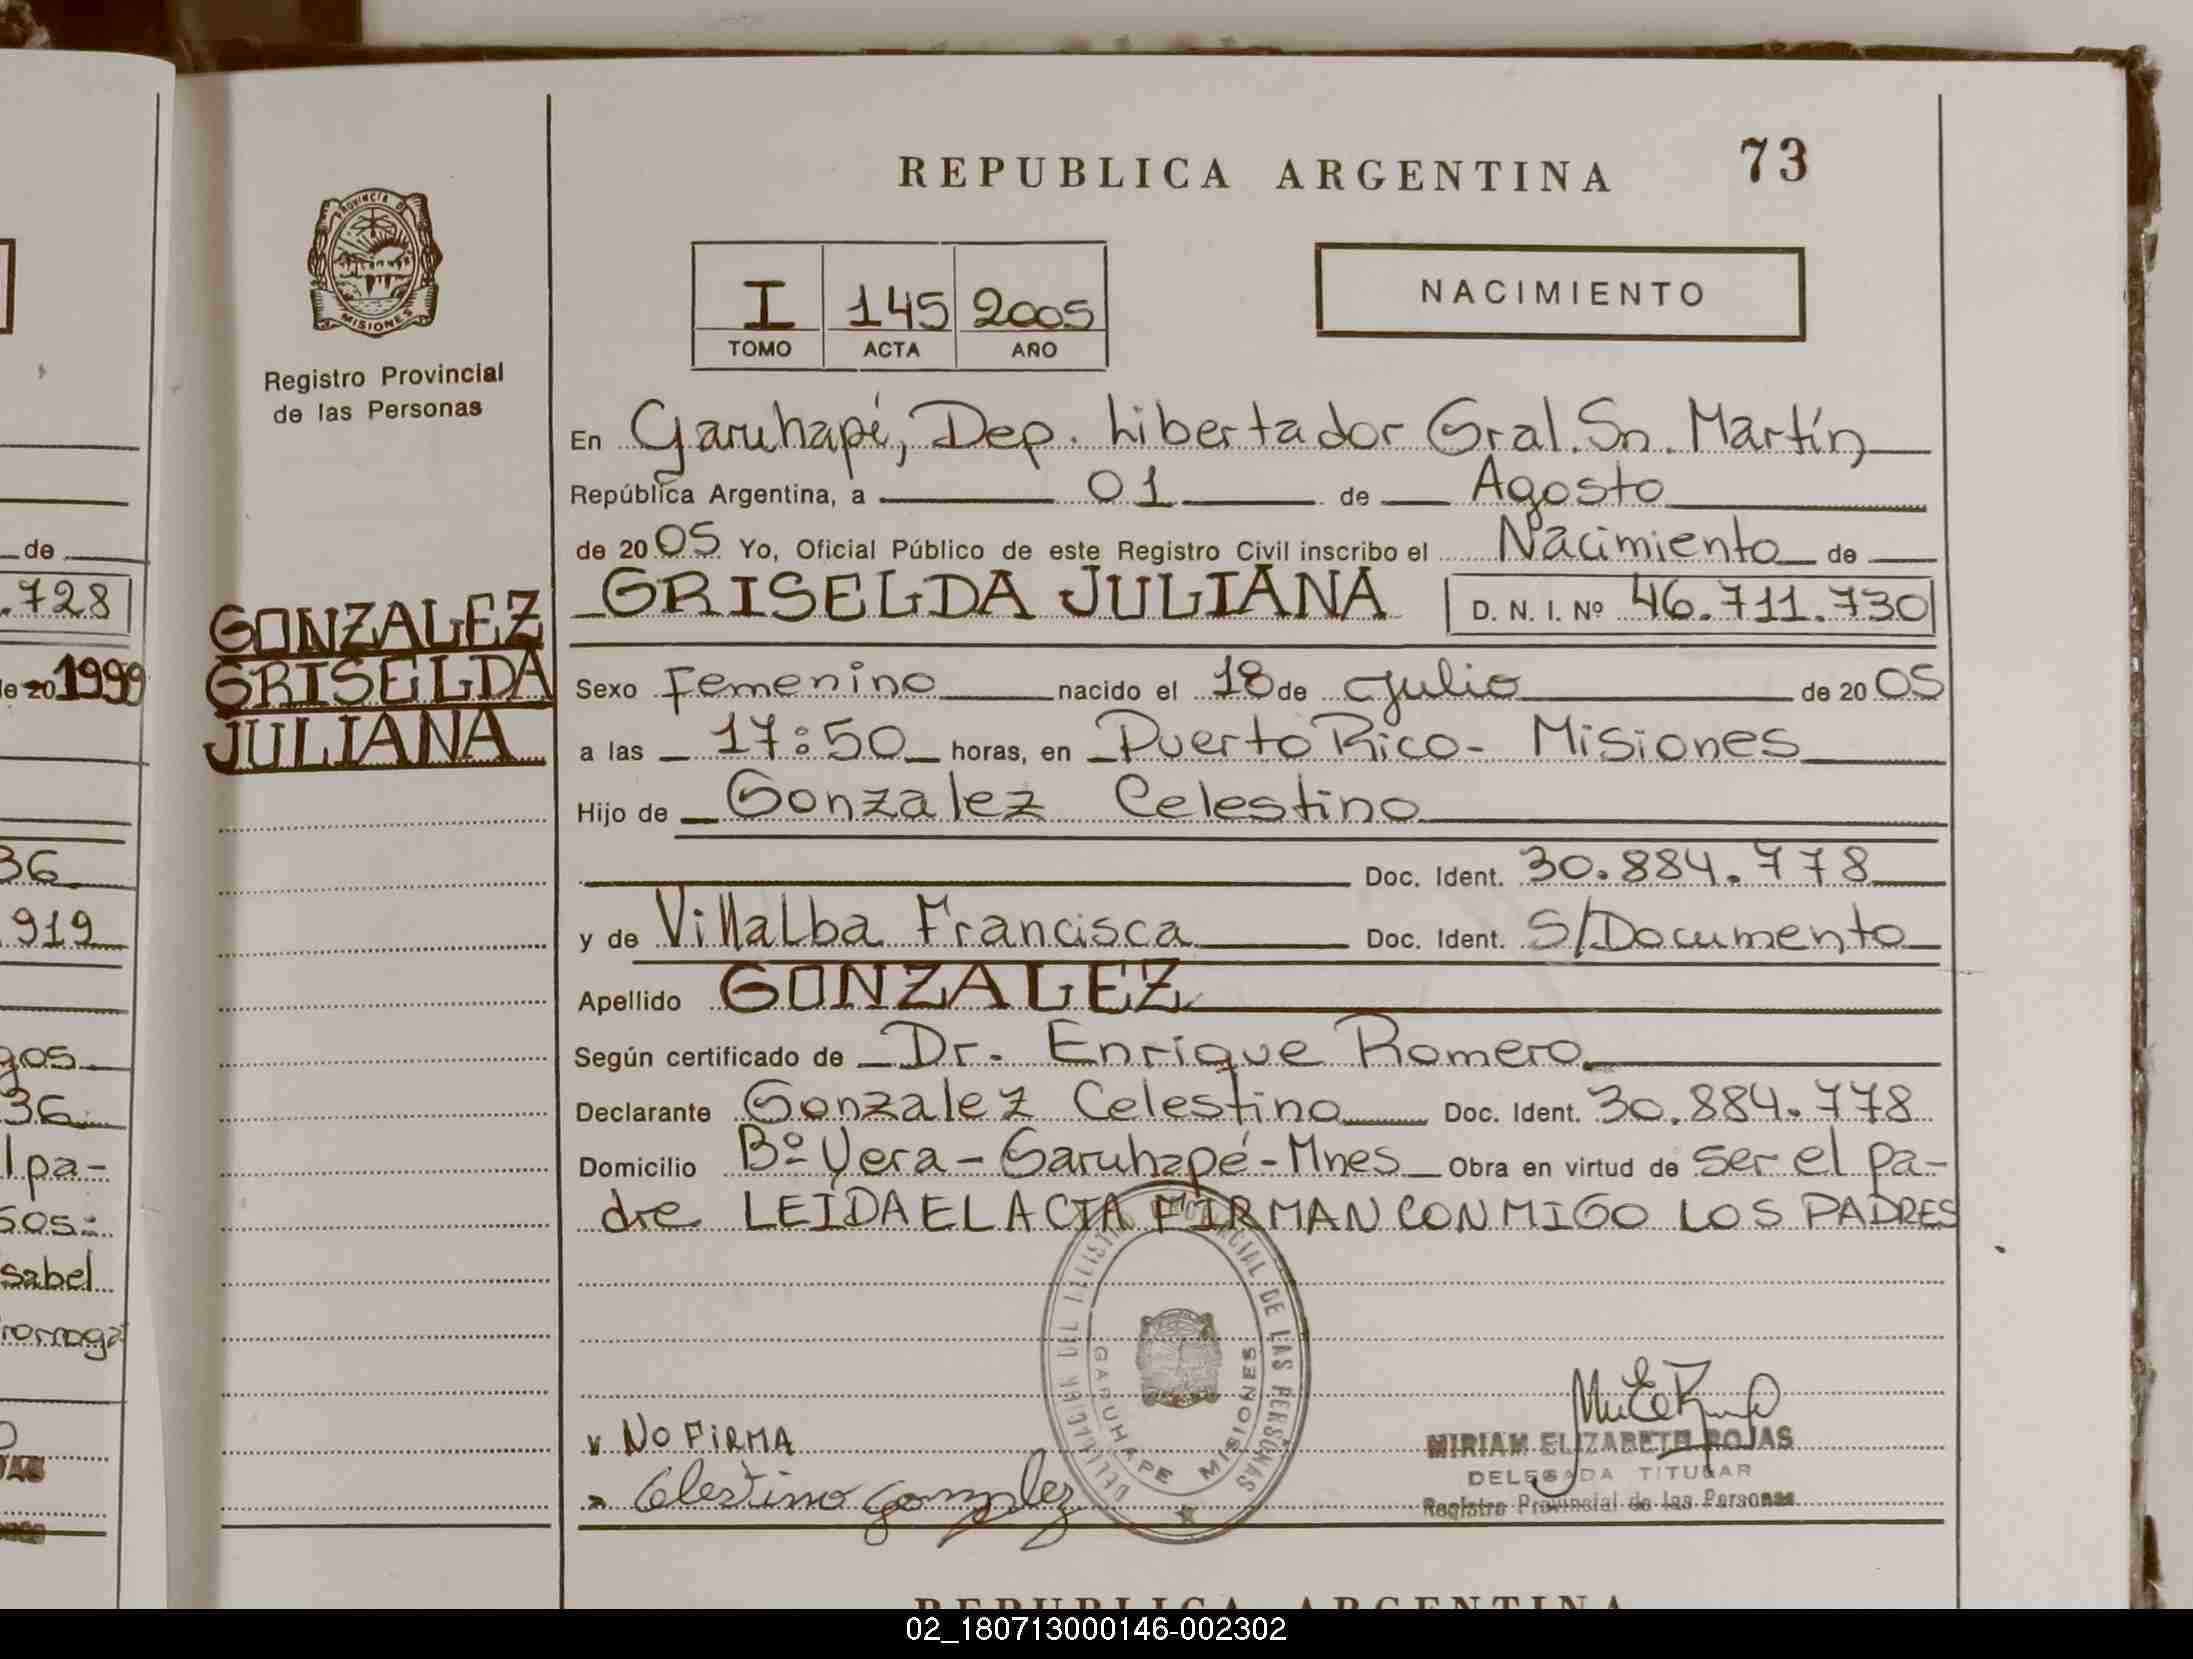 REPUBLICA ARGENTINA 73
PROVINCIA DE
MISIONES
Registro Provincial
de las Personas
I 145 2005
TOMO ACTA AÑO
NACIMIENTO
En Garuhapé, Dep. Libertador Gral. Sn. Martín
República Argentina, a 01 de Agosto
de 2005 Yo, Oficial Público de este Registro Civil inscribo el Nacimiento de
GRISELDA JULIANA D. N. I. Nº 46.711.730
GONZALEZ
GRISELDA
JULIANA
Sexo Femenino nacido el 18 de Julio de 2005
a las 17:50 horas, en Puerto Rico - Misiones
Hijo de Gonzalez Celestino
Doc. Ident. 30.884.778
y de Villalba Francisca Doc. Ident. S/Documento
Apellido GONZALEZ
Según certificado de Dr. Enrique Romero
Declarante Gonzalez Celestino Doc. Ident. 30.884.778
Domicilio Bº Vera - Garuhapé - Mnes Obra en virtud de ser el pa-
dre LEÍDA EL ACTA FIRMAN CONMIGO LOS PADRES
DE LAS PERSONAS
GARUHAPE MISIONES
NO FIRMA
Celestino Gonzalez
MIRIAM ELIZABETH ROJAS
DELEGADA TITULAR
Registro Provincial de las Personas
de
.728
de 20 1999
36
919
gos
36
l pa-
sos:
sabel
REPUBLICA ARGENTINA
02_180713000146-002302